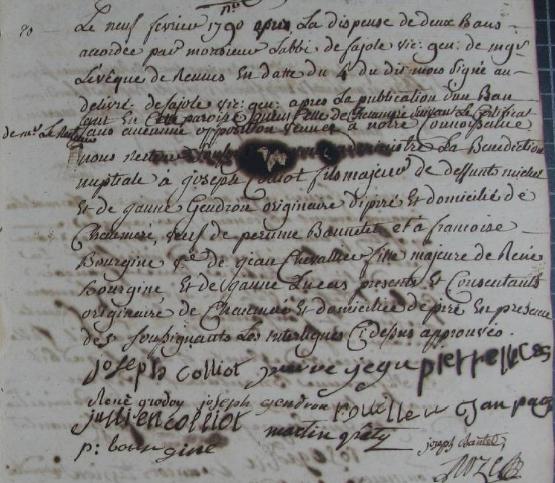 80
Le neuf fevrier 1790 apres La dispense de deux Bans
accordée par monsieur Labbé de fajole vic: gen: de mgr
L'évêque de Rennes En datte du 4e du dit mois signée au-
delivré defajole vic: gen: apres La publication d'un Ban
tant En Cette paroisse qu'en Celle de Chaumeré suivant Le Certificat
de mr Le Recteur sans aucunne opposition venue à notre Connoissance
nous recteur administré La Benediction
nuptiale a joseph Colliot fils majeur de deffunts michel
Et de janne Gendron originaire de piré Et domicilié de
Chaumeré, veuf de perinne Bannetel et à francoise
Bourgine ve de jean Chevallier fille majeure de René
Bourgine Et de janne Lucas presents Et Consentants
originaire de Chaumeré Et domiciliée de piré En presence
des soussignants Les interlignes Cy dessus approuvés.
joseph colliot pierre jegu pierre lucas
René joseph gendron rouilleu jan pag
jullien colliot martin joseph
p: bourgine